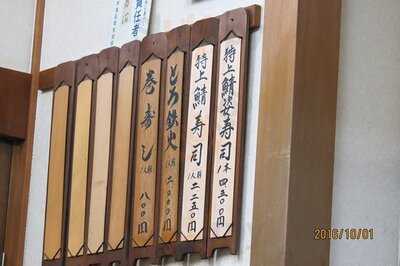 特上鯖姿寿司 1本 四五〇〇円
特上鯖寿司 1人前 二二五〇円
とろ鉄火 1人前 二〇〇〇円
巻寿し 1人前 八〇〇円
責任者
2016/10/01